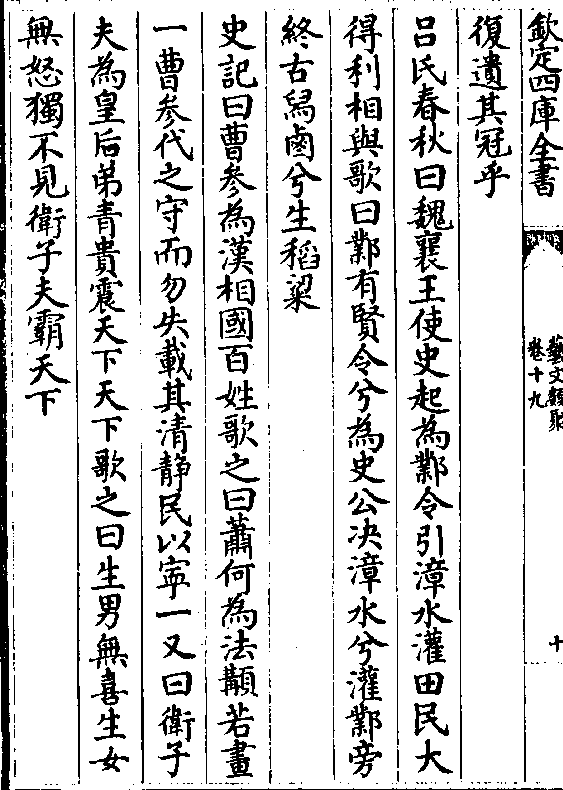 欽定四庫全書
藝文類聚
卷十九
十
復遺其冠乎
吕氏春秋曰魏襄王使史起為鄴令引漳水灌田民大
得利相與歌曰鄴有賢令兮為史公决漳水兮灌鄴旁
終古舄鹵兮生稻粱
史記曰曹參為漢相國百姓歌之曰蕭何為法顜若畫
一曹參代之守而勿失載其清静民以寧一又曰衛子
夫為皇后弟青貴震天下天下歌之曰生男無喜生女
無怒獨不見衛子夫霸天下